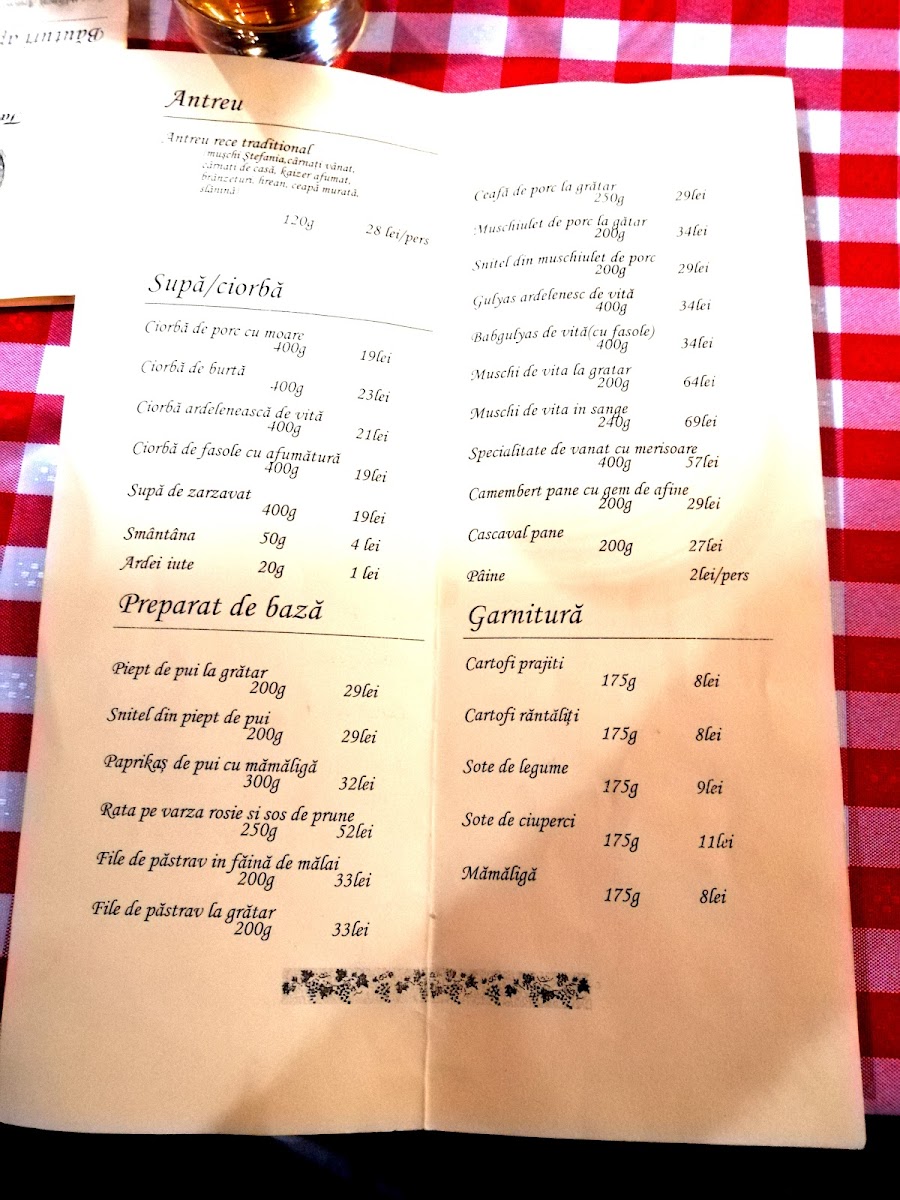 Băuturi
Antreu
Antreu rece traditional
mușchi Ștefania,cârnați vânat,
cârnați de casă, kaizer afumat,
brânzeturi, hrean, ceapă murată,
slănină
120g 28 lei/pers
Supă/ciorbă
Ciorbă de porc cu moare
400g 19lei
Ciorbă de burtă
400g 23lei
Ciorbă ardelenească de vită
400g 21lei
Ciorbă de fasole cu afumătură
400g 19lei
Supă de zarzavat
400g 19lei
Smântâna 50g 4 lei
Ardei iute 20g 1 lei
Preparat de bază
Piept de pui la grătar
200g 29lei
Snitel din piept de pui
200g 29lei
Paprikaș de pui cu mămăligă
300g 32lei
Rata pe varza rosie si sos de prune
250g 52lei
File de păstrav in făină de mălai
200g 33lei
File de păstrav la grătar
200g 33lei
Ceafă de porc la grătar
250g 29lei
Muschiulet de porc la gătar
200g 34lei
Snitel din muschiulet de porc
200g 29lei
Gulyas ardelenesc de vită
400g 34lei
Babgulyas de vită(cu fasole)
400g 34lei
Muschi de vita la gratar
200g 64lei
Muschi de vita in sange
240g 69lei
Specialitate de vanat cu merisoare
400g 57lei
Camembert pane cu gem de afine
200g 29lei
Cascaval pane
200g 27lei
Pâine 2lei/pers
Garnitură
Cartofi prajiti
175g 8lei
Cartofi răntăliți
175g 8lei
Sote de legume
175g 9lei
Sote de ciuperci
175g 11lei
Mămăligă
175g 8lei